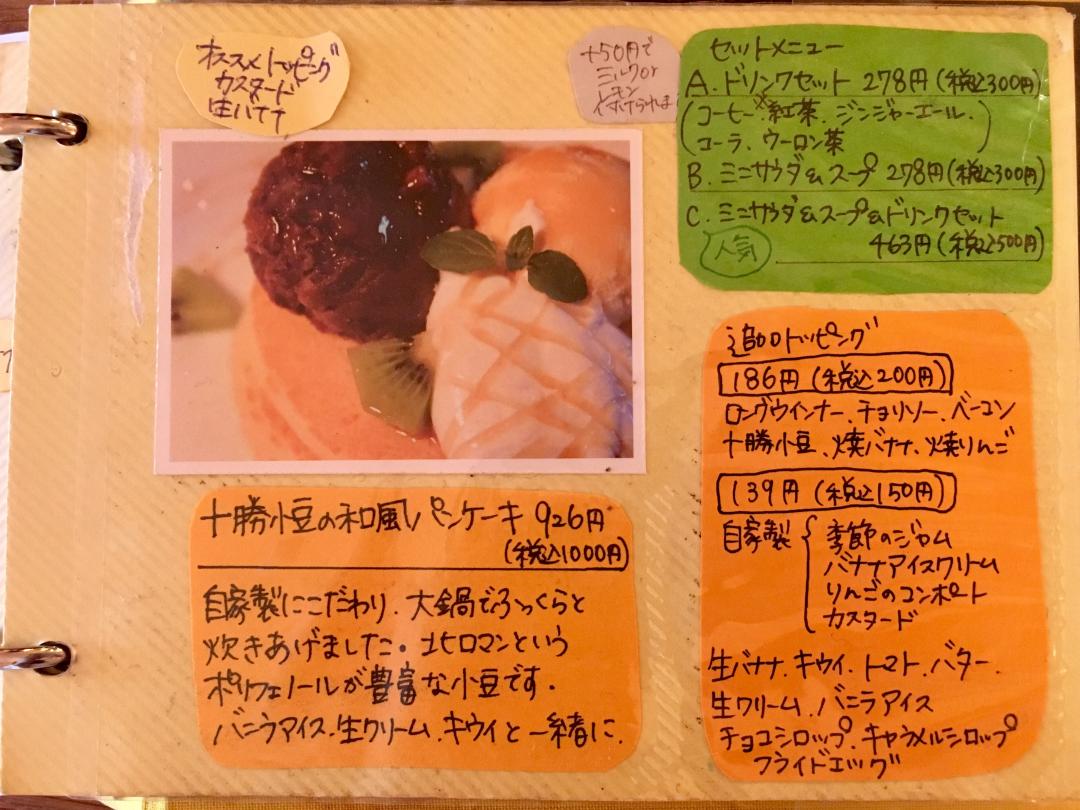 オススメトッピング
カスタード
生バナナ
+50円で
ミルクor
レモン
セットメニュー
A.ドリンクセット 278円(税込300円)
(コーヒー.紅茶.ジンジャーエール.
コーラ.ウーロン茶)
B.ミニサラダ&スープ 278円(税込300円)
C.ミニサラダ&スープ&ドリンクセット
人気
463円(税込500円)
追加トッピング
186円(税込200円)
ロングウインナー.チョリソー.ベーコン
十勝小豆.焼バナナ.焼りんご
139円(税込150円)
自家製{季節のジャム
バナナアイスクリーム
りんごのコンポート
カスタード
生バナナ.キウイ.トマト.バター.
生クリーム.バニラアイス
チョコシロップ.キャラメルシロップ
フライドエッグ
十勝小豆の和風パンケーキ 926円
(税込1000円)
自家製にこだわり.大鍋でふっくらと
炊きあげました。北ロマンという
ポリフェノールが豊富な小豆です.
バニラアイス.生クリーム.キウイと一緒に.